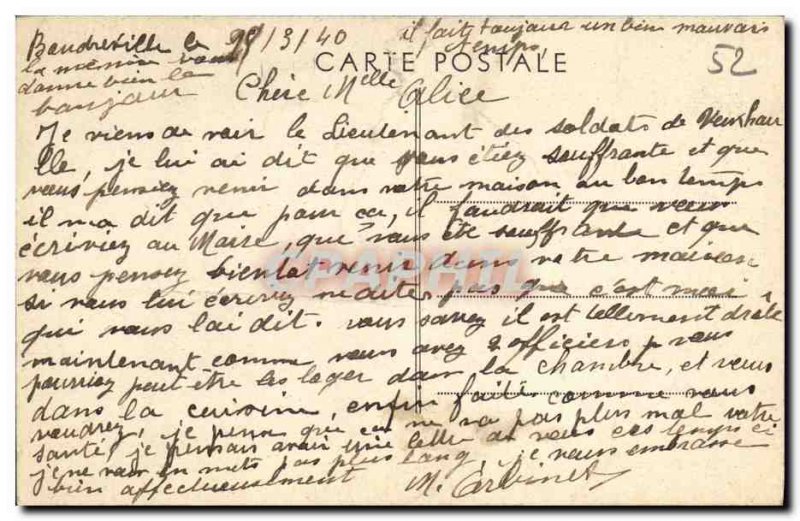 Baudreville le 28/3/40
il fait toujours un bien mauvais
temps,
la mémé vous
donne bien le
bonjour
CARTE POSTALE
52
Chère Melle Alice
Je viens de voir le Lieutenant des soldats de
lle, je lui ai dit que vous étiez souffrante et que
vous pensiez venir dans votre maison au bon temps
il m'a dit que pour ça, il faudrait que vous
écriviez au Maire, que vous été souffrante et que
vous pensez bientot venir dans votre maison
si vous lui écrivez ne dites pas que c'est moi
qui vous l'ai dit. vous savez il est tellement drôle
maintenant comme vous avez 2 officiers, vous
pourriez peut-être les loger dans la chambre, et vous
dans la cuisine, enfin faite comme vous
voudrez, je pense que ça ne va pas plus mal votre
santé, je pensais avoir une lettre de vous ces temps ci
je ne vois en mets pas plus long je vous embrasse
bien affectueusement
M.
CPARAMA